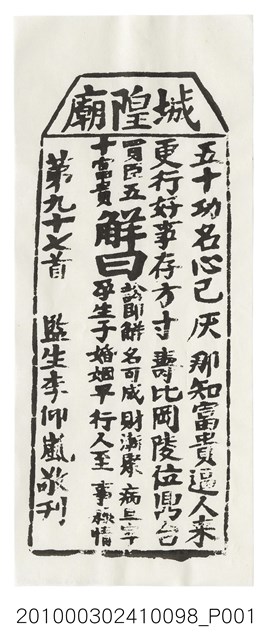 城隍廟
五十功名心已灰那知富貴逼人來
更行好事存方寸壽比岡陵位鼎台
買臣五
十富貴
解曰
訟即解名可成財漸聚病且寧
孕生子婚姻平行人至事稱情
第九十七首
監生李仰嵐敬刋
201000302410098_P001